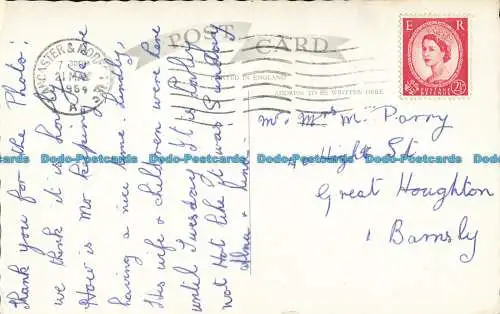 POST CARD
PRINTED IN ENGLAND
ADDRESS TO BE WRITTEN HERE
LANCASTER &
21 MAY
1954
E R
POSTAGE REVENUE
2½D
Mr Mrs M. Parry
High St
Great Houghton
Barnsly
thank you for the Photo!
we think it is lovely
How is Mr keeping. We are
having a nice time. Emtly,
His wife & children were here
until Tuesday. It is fairly
not Hot like it was. Saturday
Dodo-Postcards Dodo-Postcards Dodo-Postcards Dodo-Postcards Dodo-Postcards